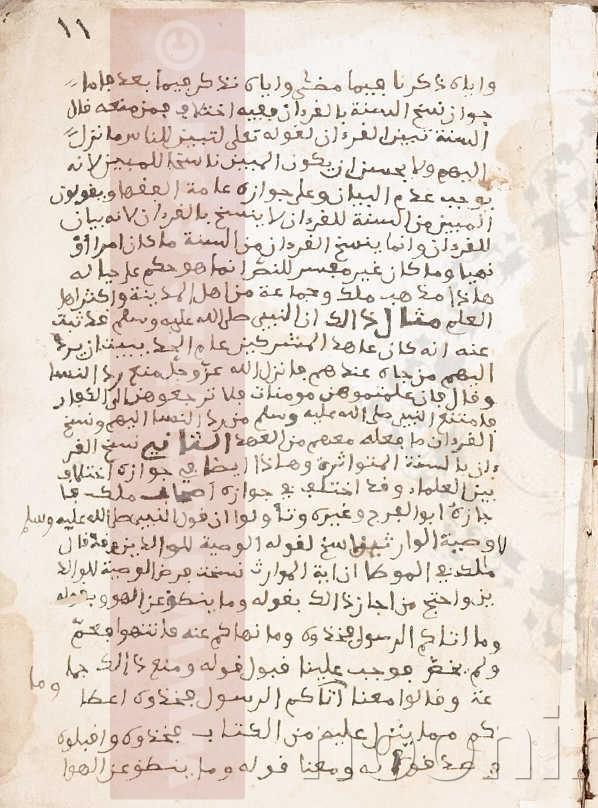 ١١
وإياه ذكرنا فيما مضى وإياه نذكر فيما بعد فاما
جواز نسخ السنة بالقرءان ففيه اختلاف فمن منعه قال
السنة تبين القرءان لقوله تعلى لتبين للناس ما نزل
اليهم ولا يحسن ان يكون المبين ناسخا للمبين لانه
يوجب عدم البيان وعلى جوازه عامة الفقها ويقولون
المبين من السنة للقرءان لا ينسخ بالقرءان لانه بيان
للقرءان وانما ينسخ القرءان من السنة ما كان امرا او
نهيا وما كان غير مفسر للقرءان انما هو حكم على حياله
هاذا مذهب ملك وجماعة من اهل المدينة واكثر اهل
العلم مثال ذالك ان النبي صلى الله عليه وسلم قد ثبت
عنه انه كان عاهد المشركين عام الحديبية ان يرد
اليهم من جاه عندهم فانزل الله عز وجل منع رد النسا
وقال فان علمتموهن مومنات فلا ترجعوهن الى الكفار
فامتنع النبي صلى الله عليه وسلم من رد النسا اليهم ونسخ
القرءان ما فعله معهم من العهد الثاني نسخ القر
ءان بالسنة المتواترة وهاذا ايضا في جوازه اختلاف
بين العلماء وقد اختلف في جوازه اصحاب ملك فا
جازه ابو الفرج وغيره وتأولوا ان قول النبي صلى الله عليه وسلم
لا وصية لوارث ناسخ لقوله الوصية للوالدين وقد قال
ملك في الموطا ان اية الموارث نسخت فرض الوصية للوالد
ين واحتج من اجاز ذالك بقوله وما ينطق عن الهوى وبقوله
وما اتاكم الرسول فخذوه وما نهاكم عنه فانتهوا فعمّ
ولم يخص فوجب علينا قبول قوله ومنع ذالك جما
عة وقالوا معنا اتاكم الرسول فخذوه اعطا وما
كم مما ينزل عليه من الكتاب فخذوه واقبلوه
وصدقوا به ومعنا قوله وما ينطق عن الهوا